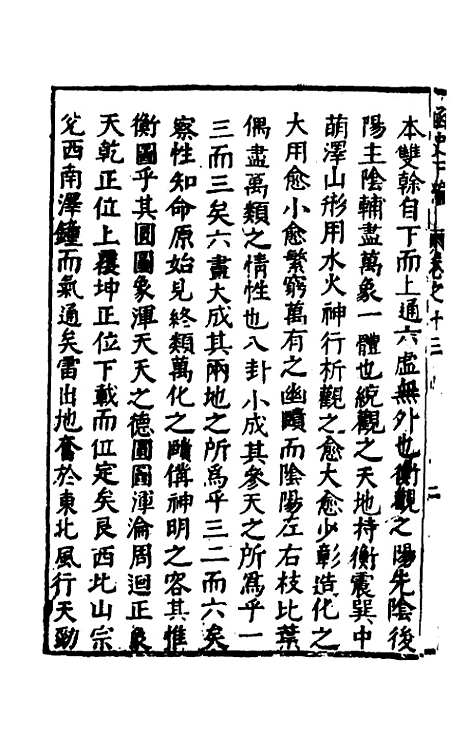 函史下編 卷之十三 二
本雙榦自下而上通六虛無外也衡觀之陽先陰後
陽主陰輔盡萬象一體也統觀之天地持衡震巽中
萌澤山形用水火神行析觀之愈大愈少彰造化之
大用愈小愈繁窮萬有之幽賾而陰陽左右枝比葉
偶盡萬類之情性也八卦小成其參天之所爲乎一
三而三矣六畫大成其兩地之所爲乎三二而六矣
察性知命原始見終類萬化之賾備神明之容其惟
衡圖乎其圓圖象渾天天之德圓圖渾淪周迴正象
天乾正位上覆坤正位下載而位定矣艮西北山宗
兊西南澤鍾而氣通矣雷出地奮於東北風行天勁